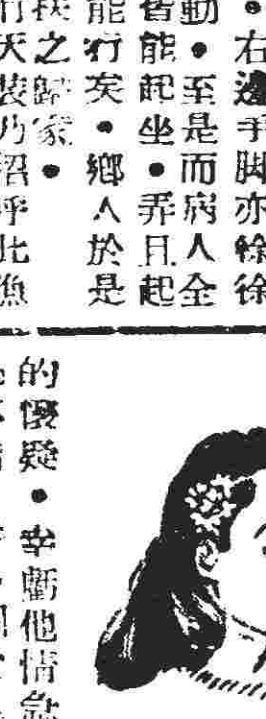 ●右邊手脚亦徐徐
動●至是而病人全
皆能起坐●弄且起
能行矣●鄉人於是
扶之歸家●
行天裝乃招呼此漁
的懷疑●幸虧他情急